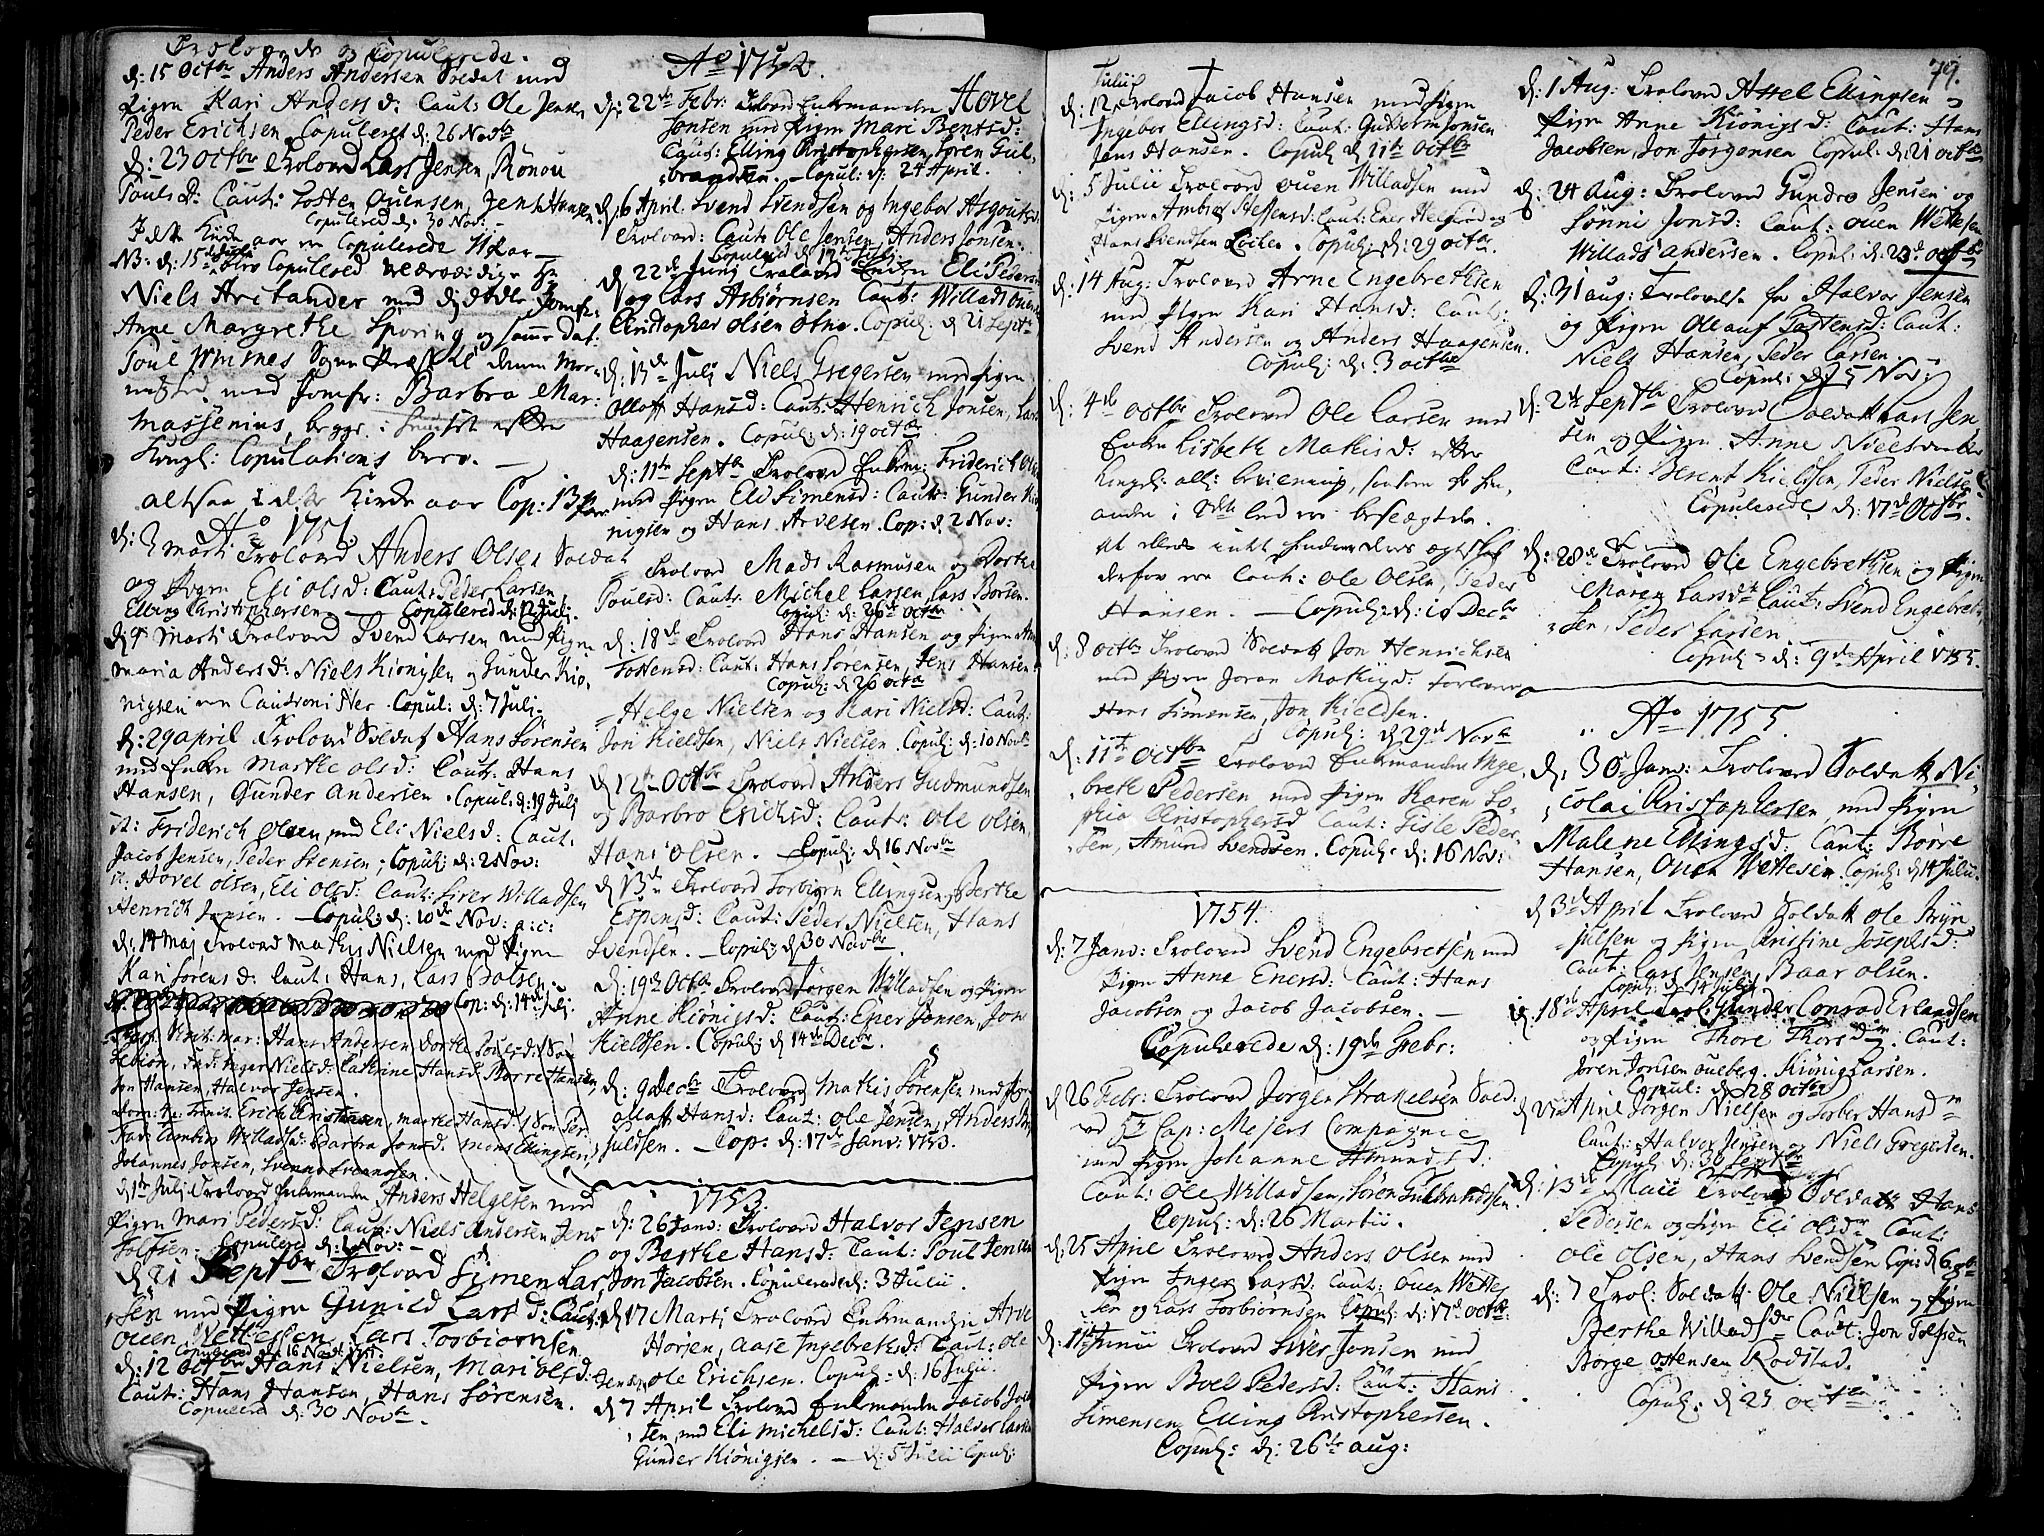 Trolovede og Copulerede.
d: 15 Octbr Anders Andersen Soldat med
Pigen Kari Andersd: Caut: Ole Jensen
Peder Erichsen. Copuleret d: 26 Novbr
d: 23 Octbr Trolovd Lars Jensen, Rønou
Poulsd: Caut: Tosten Auensen, Jens Hansen
Copulered d: 30 Nov:
Kirke aar ere Copulerede 11 Par
NB: d: 15 blev Copulered velærværdige Hr
Niels Arctander med dydædle Jomfr:
Anne Margrethe Sporing og samme dat:
Poul Sogne Præst til
med Jomfr: Barbra Mar:
massenius, begge i huuset efter
Kongl: Copulations brev.
altsaa i dette Kirke aar Cop: 13 Par
Ao 1751.
d: 2 marti Trolovd Anders Olsen Soldat
og Pigen Eli olsd: Caut: Peder Larsen
Elling Christophersen Copulered d: 2 Juli:
d 9 Marti Trolovd Svend Larsen med Pigen
Maria Andersd: Niels Kionigsen og Gunder Kio,
nigsen ere Cautionister. Copul: d: 7 Juli.
d: 29 april Trolovd Soldat Hans Sørensen
med Enken Marthe olsd: Caut: Hans
Hansen, Gunder Andersen. Copul: d: 19 Julj
it: Friderich Olsen, med Eli Nielsd: Caut:
Jacob Jensen, Peder Stensen; Copul: d: 2 Nov:
it: Hovel olsen, Eli olsd: Caut: Siver Willadsen
Henrich Jensen. Copul: d: 10de Nov:
d: 14 Maj Trolovd Mathis Nielsen med Pigen
Kari Sørensd: Caut: Hans, Lars
Cop: d: 14 Julj.
Hans Andersen Dorthe Poulsd:
Inger Nielsd: Cathrine Hansd: Børre Hansen,
Jon Hansen, Halvor Jensen.
Dom: Erich Christensen, Marthe Hansd:
Willadsd: Barbra Jonsd: Mons Ellingsen,
Johannes Jonsen,
d 1ste Julj Trolovd Enkemanden Anders Helgesen med
Pigen Mari Pedersd: Caut: Niels Andersen Jens
Tolfsen. Copulered d: 1 Nov:
d 21 Septbr Trolovd Simen Lar,
sen med Pigen Gunild Larsd: Caut:
Ouen Wettessen, Lars Torbiornsen.
Copulered d: 16 Novbr 1751.
d: 12 octbr Hans Nielsen, Mari olsd:
Caut: Hans Hansen, Hans Sørensen.
Copulered d: 30 Novbr.
Ao 1752.
d: 22 Febr: Trolovd Enkemanden Hovel
Jonsen med Pigen Mari Bentsd:
Caut: Elling Christophersen, Søren Gul,
brandsen. Copul: d: 24 April.
d: 6 April Svend Svendsen og Ingebor Asgoutsd:
Trolovd: Caut: Ole Jensen, Anders Jonsen.
Copulered d 12
d 22de Junj Trolovd Enken Eli Pedersd:
og Lars Asbiørnsen Caut: Willads
Christopher olsen Copul: d: 21 Septbr
d: 13de Julj Niels Gregersen med Pigen
Olloff Hansd: Caut: Henrich Jonsen, Lars
Haagensen. Copul: d: 19 octbr
d: 11te Septbr Trolovd Enkem: Friderich
med Pigen Eli Simensd: Caut: Gunder Kiø
nigsen og Hans Arvesen Cop: d: 2 Nov:
Trolovd Mads Rasmusen og Dorthe
Poulsd: Caut: Michel Larsen, Lars Borsen.
Copul: d: 26de octbr
d: 18de Trolovd Hans Hansen og Pigen
Tostensd: Caut: Hans Sørensen, Jens Hansen
Copul: d: 26 octbr
Helge Nielsen og Kari Nielsd: Caut:
Jon Kieldsen, Niels Nielsen. Copul: d: 10 Novbr
d: 12te Octbr Trolovd Anders Gudmundsen
og Barbro Erichsd: Caut: Ole olsen,
Hans olsen. Copul: d: 16 Novbr
d 13de Trolovd Torbiørn Ellingsen, Berthe
Espensd: Caut: Peder Nielsen, Hans
Svendsen. Copul: d: 30 Novbr.
d: 19de Octbr Trolovd Jørgen Willadsen og Pigen
Anne Kiønigsd: Caut: Eper Jensen, Jon
Kieldsen. Copul: d: 14de Decbr.
d: 9 Decbr Trolovd Mathis Sørensen med Pigen
olloff Hansd: Caut: Ole Jensen, Anders
Cop: d: 17de Janv: 1753.
1753.
d: 26 Janv: Trolovd Halvor Jensen
og Berthe Hansd: Caut: Poul Jensen
Jon Jacobsen. Copulerede d: 3 Julii.
d 17 Marti Trolovd Enkemanden Arve
Horjen, Aase Ingebrethsd: Caut: Ole
Jensen, ole Erichsen. Copul: d: 16 Julii.
d 7 April Trolovd Enkemanden Jacob
sen, med Eli Michelsd: Caut: Halvor Larsen
Gunder Kiønigsen. d: 5 Julii Copul:
Julii
d: 12 Trolovd Jacob Hansen med Pigen
Ingebor Ellingsd: Caut: Guttorm Jonsen
Jens Hansen. Copul: d 11te Octbr
d: 5 Julii Trolovd ouen Willadsen med
Pigen Ambiør Steffensd: Caut: Ener Helgerud og
Hans Svendsen Løcken. Copul: d: 29 octbr.
d: 14 Aug: Trolovd Arne Engebrethsen
med Pigen Kari Hansd: Caut:
Svend Andersen og Anders Haagensen.
Copul: d: 3 octbr
d: 4de octbr Trolovd Ole Larsen med
Enken Lisbeth Mathisd: efter
Kongel: all: bevilning, saasom de hin,
anden i 3die led ere beslægtede.
At dette intet hindrer deres ægteskab
derfor ere Caut: Ole Olsen, Peder
Hansen Copul: d: 10 Decbr
d: 8 octbr Trolovd Soldat Jon Henrichsen
med Pigen Joran Mathisd: Forlovere
Hans Simensen, Jon Kieldsen.
Copul: d 29de Novbr
d: 11te Octbr Trolovd Enkemanden Inge,
breth Pedersen med Pigen Karen So,
phia Christophersd: Caut: Gisle Peder,
sen, Amund Svendsen. Copul: d: 16 Nov:
1754.
d: 7 Janv: Trolovd Svend Engebretsen med
Pigen Anne Enersd: Caut: Hans
Jacobsen og Jacob Jacobsen.
Copulerede d: 19de Febr:
d 26 Febr: Trolovd Jørgen Strakelsen Sold:
ved Hr Cap: Mejers Compagnie
med Pigen Johanne Amundsd:
Caut: Ole Willadsen, Søren Gulbrandsen.
Copul: d: 26 Martii.
d: 25 April Trolovd Anders Olsen med
Pigen Inger Larsd: Caut: Ouen Wettes,
sen og Lars Torbiornsen Copul: d: 17de octbr:
d: 11te Junii Trolovd Siver Jonsen med
Pigen Boel Pedersd: Caut: Hans
Simensen, Elling Christophersen.
Copul: d: 26te aug:
79.
d: 1 Aug: Trolovd Axel Ellingsen og
Pigen Anne Kionigsd: Caut: Hans
Jacobsen, Jon Jørgensen Copul: d: 21 octbr
d: 24 Aug: Trolovd Gunder Jensen og
Sønni Jonsd: Caut: ouen Wettesen
Willads Andersen. Copul: d: 23de octbr
d: 31 aug: Trolovelse for Halvor Jensen
og Pigen Oleauf Tostensd: Caut:
Niels Hansen, Peder Larsen.
Copul: d 5 Nov:
d: 24 Septbr Trolovd Soldat Lars Jen
sen og Pigen Anne Nielsdaatter
Caut: Berent Kieldsen, Peder Nielsen
Copulerede d: 17de Octbr.
d: 28de Trolovd Ole Engebrethsen og Pigen
Maren Larsdtr Caut: Svend Engebreth,
sen, Peder Larsen
Copul: d: 9de April 1755.
Ao 1755.
d: 30 Janv: Trolovd Soldat Ni,
colai Christophersen, med Pigen
Malene Ellingsd: Caut: Børre
Hansen, Ouen Wettesen. Copul: d 14 Julii.
d 3de April Trolovd Soldat Ole Bryn
julsen og Pigen Christine Josephsd:
Caut: Lars Jensen, Baar olsen.
Copul: d: 14 Julii
d: 18de April Trol: Gunder Conrad Erlandsen
og Pigen Thore Thorsd: Caut:
Søren Jonsen oueberg. Kiønig Larsen.
Copul: d 28 octbr
d 21 April Jørgen Nielsen og Torber Hansd:
Caut: Halvor Jensen og Niels Gregersen.
Copul: d: 30 Septbr
d: 13de Maii Trolovd Soldat Hans
Pedersen og Pigen Eli olsdtr Caut:
Ole Olsen, Hans Svendsen Cop: d 6 octbr
d: 7 Trol: Soldat Ole Nielsen og Pigen
Berthe Willadsdtr Caut: Jon Tolfsen
Børge ostensen Rodstad.
Copul: d 23 octbr